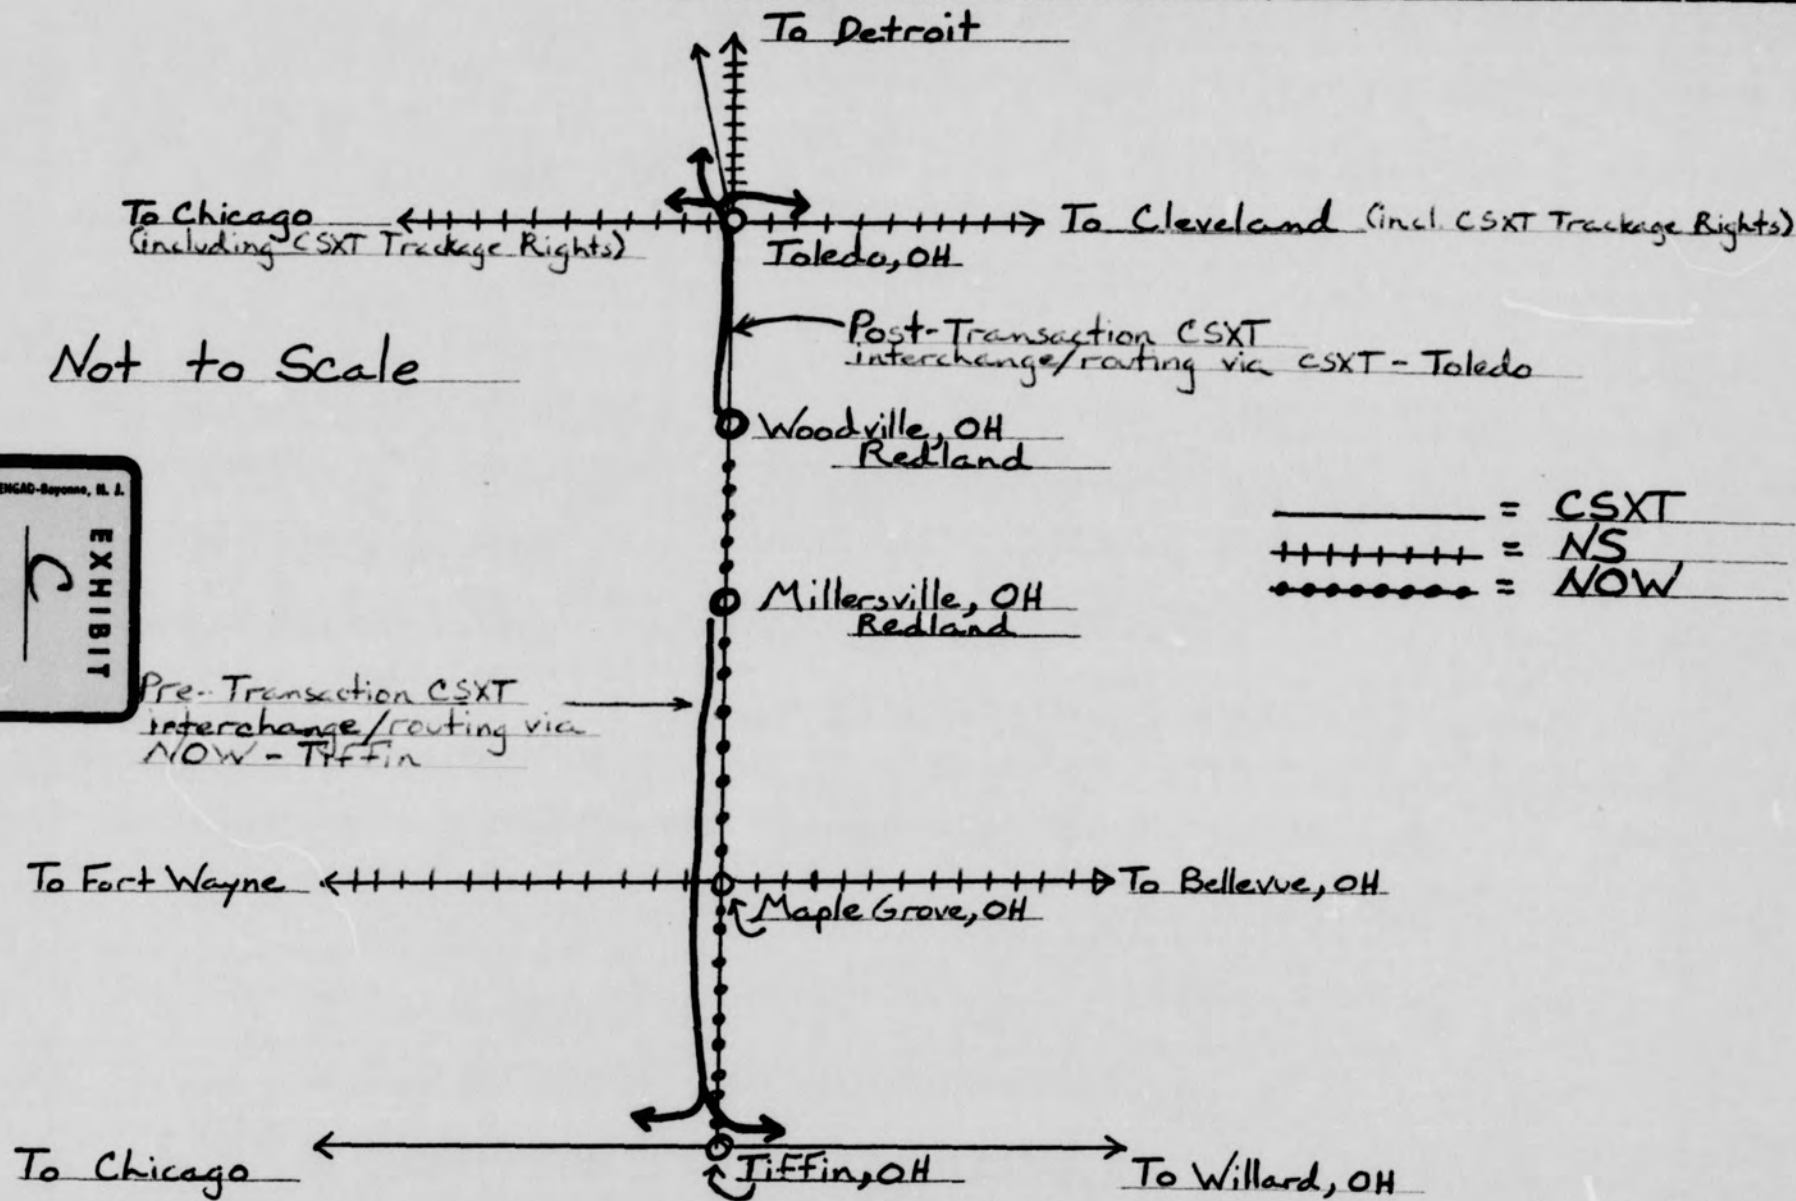 To Detroit
To Chicago
(including CSXT Trackage Rights)
To Cleveland (incl. CSXT Trackage Rights)
Toledo, OH
Post-Transaction CSXT
interchange/routing via CSXT - Toledo
Not to Scale
Woodville, OH
Redland
ENGAD-Bayonne, N. J.
EXHIBIT
C
= CSXT
= NS
= NOW
Millersville, OH
Redland
Pre-Transaction CSXT
interchange/routing via
NOW - Tiffin
To Fort Wayne
To Bellevue, OH
Maple Grove, OH
To Chicago
Tiffin, OH
To Willard, OH